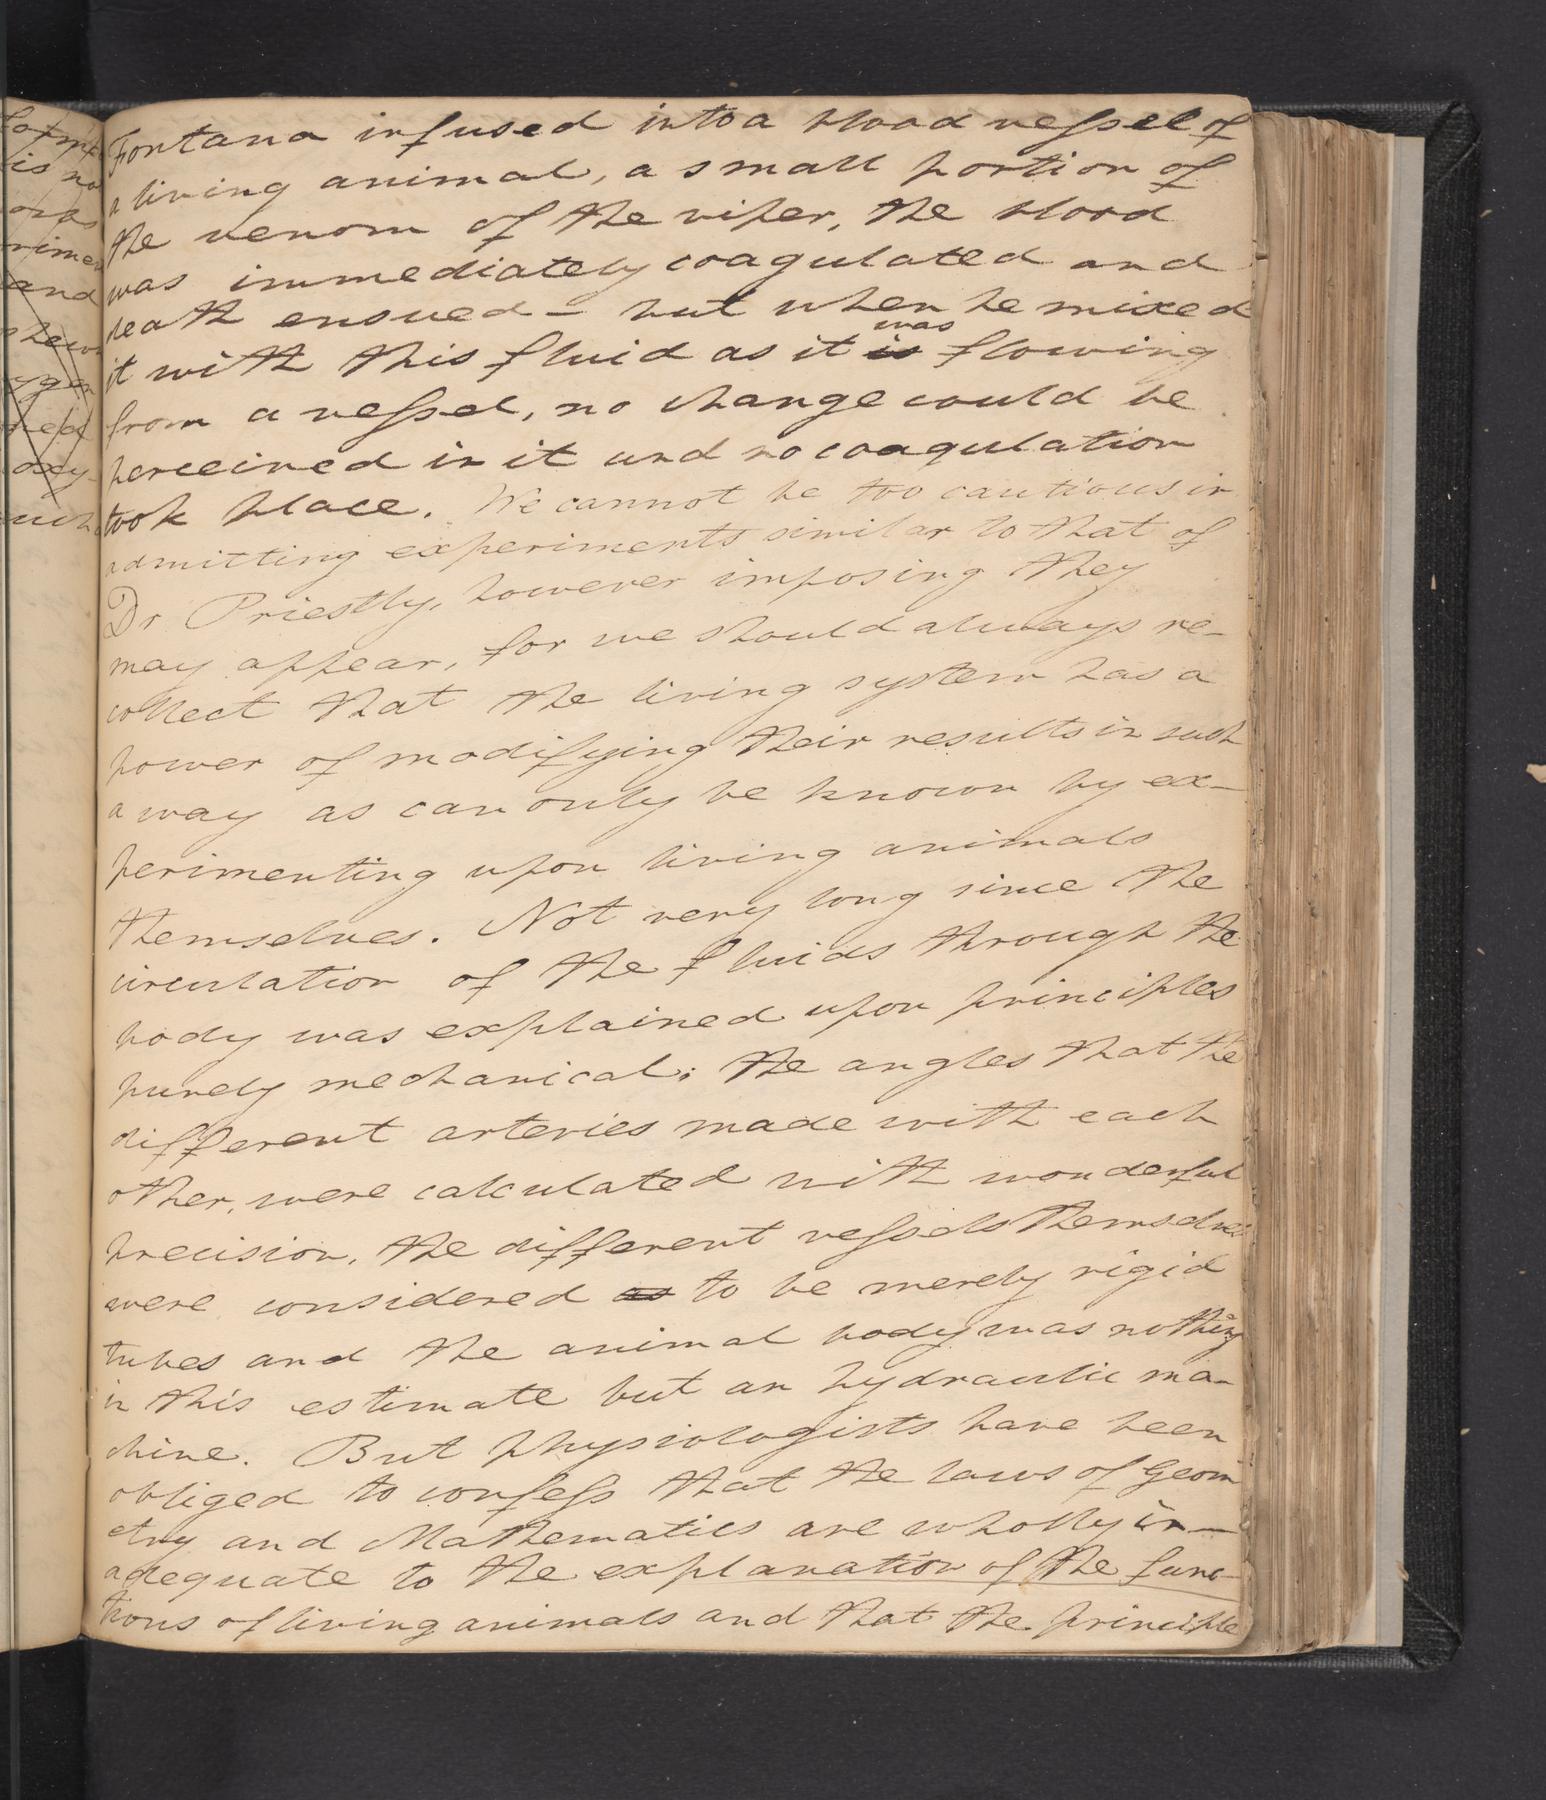 Fontana infused into a blood vessel of
a living animal, a small portion of
the venom of the viper, the blood
was immediately coagulated and
death ensued – but when he mixed
it with this fluid as it is was flowing
from a vessel, no change could be
perceived in it and no coagulation
took place. We cannot be too cautious in
admitting experiments similar to that of
Dr Priestly, however imposing they
may appear, for we should always re-
collect that the living system has a
power of modifying their results in such
a way as can only be known by ex-
perimenting upon living animals
themselves. Not very long since the
circulation of the fluids through the
body was explained upon principles
purely mechanical; the angles that the
different arteries made with each
other, were calculated with wonderful
precision, the different vessels themselves
were considered as to be merely rigid
tubes and the animal body was nothing
in this estimate but an hydraulic ma-
chine. But physiologists have been
obliged to confess that the laws of Geom
etry and Mathematics are wholly in-
adequate to the explanation of the func-
tions of living animals and that the principle